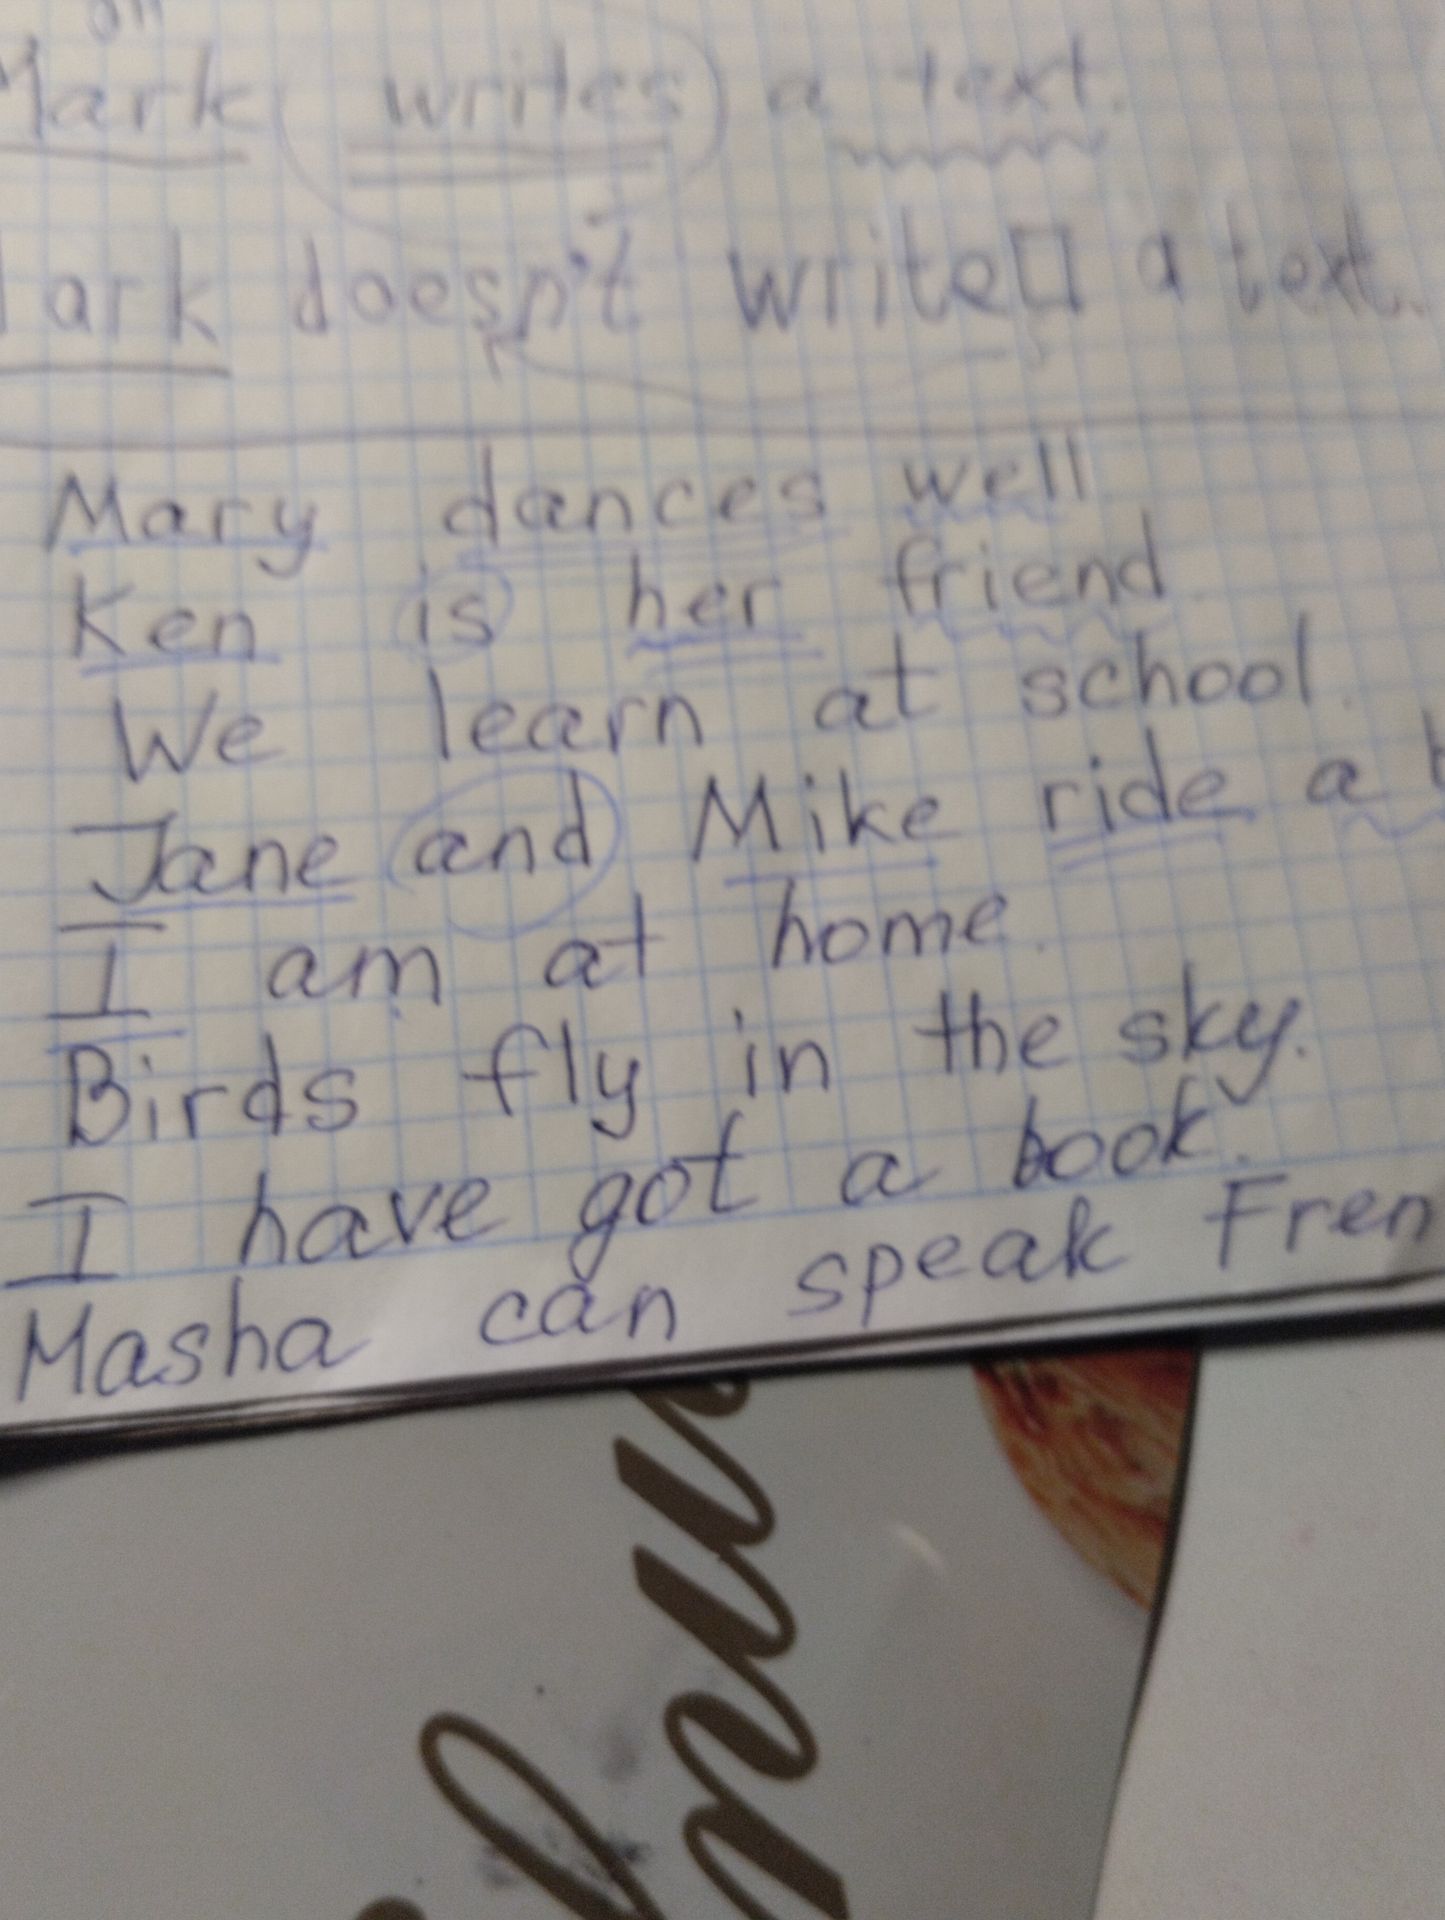 Mark writes a text.
ark doesn't write a text.
Mary dances well
Ken is her friend
We learn at school.
Jane and Mike ride a
I am at home.
Birds fly in the sky.
I have got a book.
Masha can speak Fren